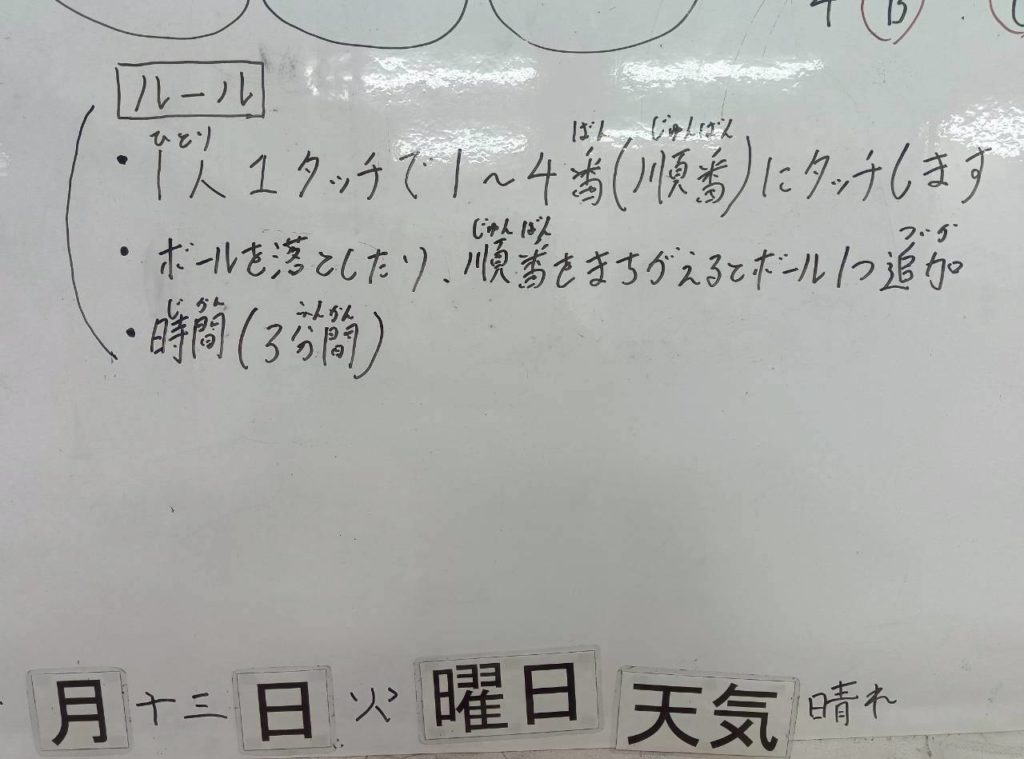 4 B
ルール
ひとり ばん じゅんばん
・1人1タッチで1〜4番(順番)にタッチします
じゅんばん
・ボールを落としたり、順番をまちがえるとボール1つ追加
じ かん ふんかん
・時間(3分間)
月 十三 日 火 曜日 天気 晴れ